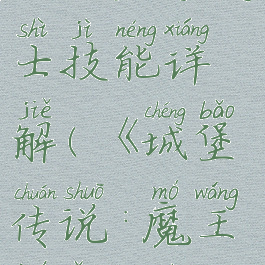 shì jì néng xiáng
士技能详
jiě chéng bǎo
解(《城堡
chuán shuō mó wáng
传说:魔王